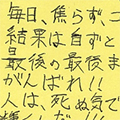 毎日、焦らず、コ
結果は自ずと
最後の最後ま
がんばれ!!
人は、死ぬ気で